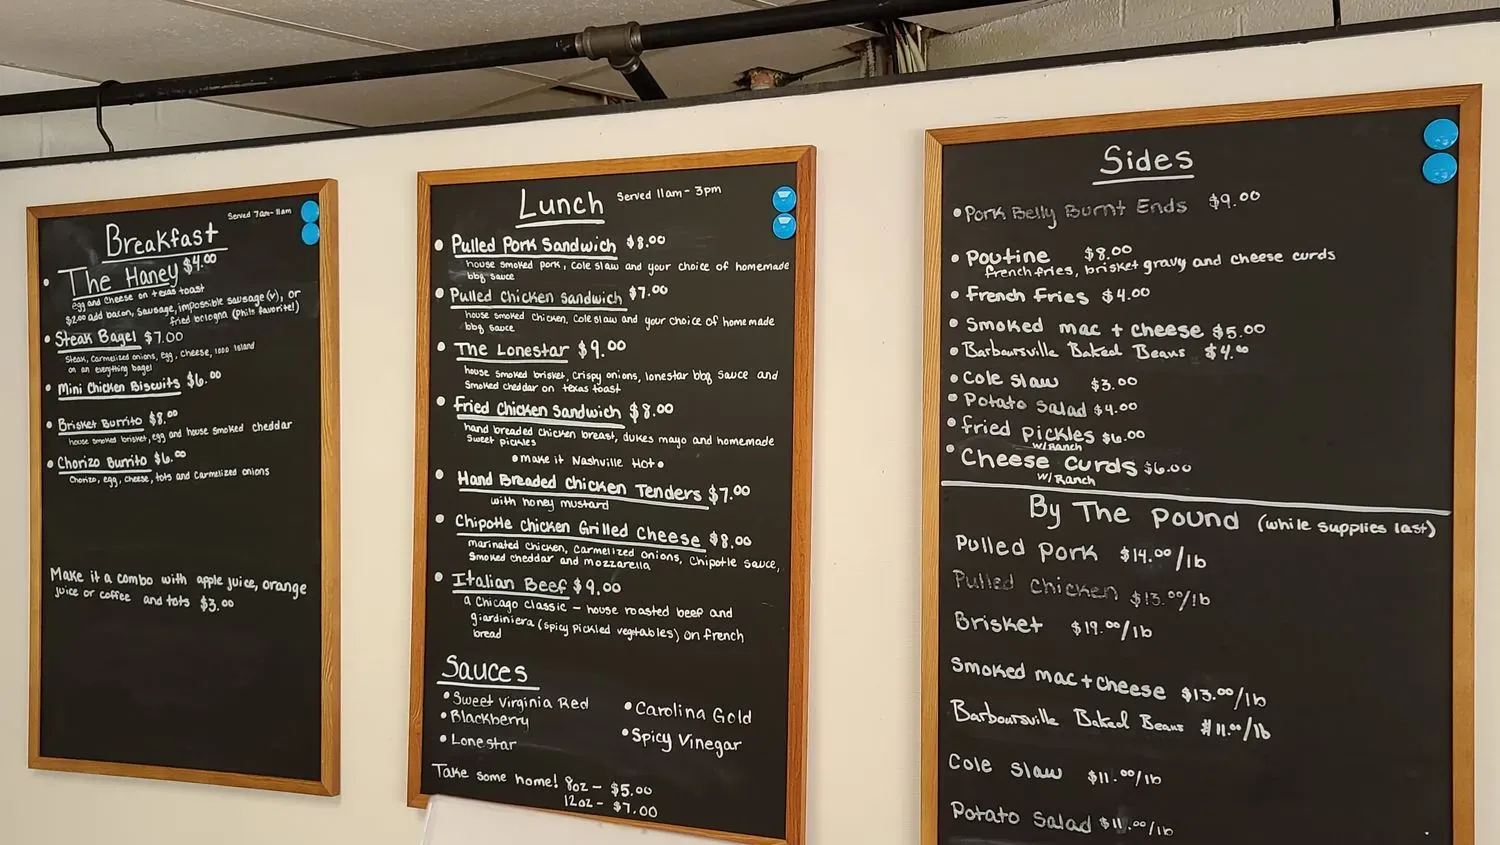 Served 7am-11am
Breakfast
• The Haney $4.00
egg and cheese on texas toast
$2.00 add bacon, sausage, impossible sausage (v), or
fried bologna (Phils favorite!)
• Steak Bagel $7.00
Steak, Carmelized onions, egg, cheese, 1000 island
on an everything bagel
• Mini Chicken Biscuits $6.00
• Brisket Burrito $8.00
house smoked brisket, egg and house smoked cheddar
• Chorizo Burrito $6.00
Chorizo, egg, cheese, tots and Carmelized onions
Make it a combo with apple juice, orange
juice or coffee and tots $3.00
Lunch Served 11am-3pm
• Pulled Pork Sandwich $8.00
house smoked pork, cole slaw and your choice of homemade
bbq sauce
• Pulled Chicken Sandwich $7.00
house smoked chicken, coleslaw and your choice of homemade
bbq sauce
• The Lonestar $9.00
house smoked brisket, crispy onions, lonestar bbq sauce and
Smoked cheddar on texas toast
• Fried Chicken Sandwich $8.00
hand breaded chicken breast, dukes mayo and homemade
sweet pickles
• make it Nashville Hot •
• Hand Breaded Chicken Tenders $7.00
with honey mustard
• Chipotle chicken Grilled Cheese $8.00
marinated chicken, Carmelized onions, Chipotle sauce,
Smoked cheddar and mozzarella
• Italian Beef $9.00
a Chicago classic - house roasted beef and
giardiniera (spicy pickled vegetables) on french
bread
Sauces
• Sweet Virginia Red
• Blackberry
• Lonestar
• Carolina Gold
• Spicy Vinegar
Take some home! 8oz - $5.00
12oz - $7.00
Sides
• Pork Belly Burnt Ends $9.00
• Poutine $8.00
french fries, brisket gravy and cheese curds
• French Fries $4.00
• Smoked mac + cheese $5.00
• Barboursville Baked Beans $4.00
• Cole slaw $3.00
• Potato Salad $4.00
• fried pickles $6.00
w/ Ranch
• Cheese curds $6.00
w/ Ranch
By The Pound (while supplies last)
Pulled pork $14.00/lb
Pulled chicken $13.00/lb
Brisket $19.00/lb
Smoked mac + cheese $13.00/lb
Barboursville Baked Beans $11.00/lb
Cole slaw $11.00/lb
Potato Salad $11.00/lb